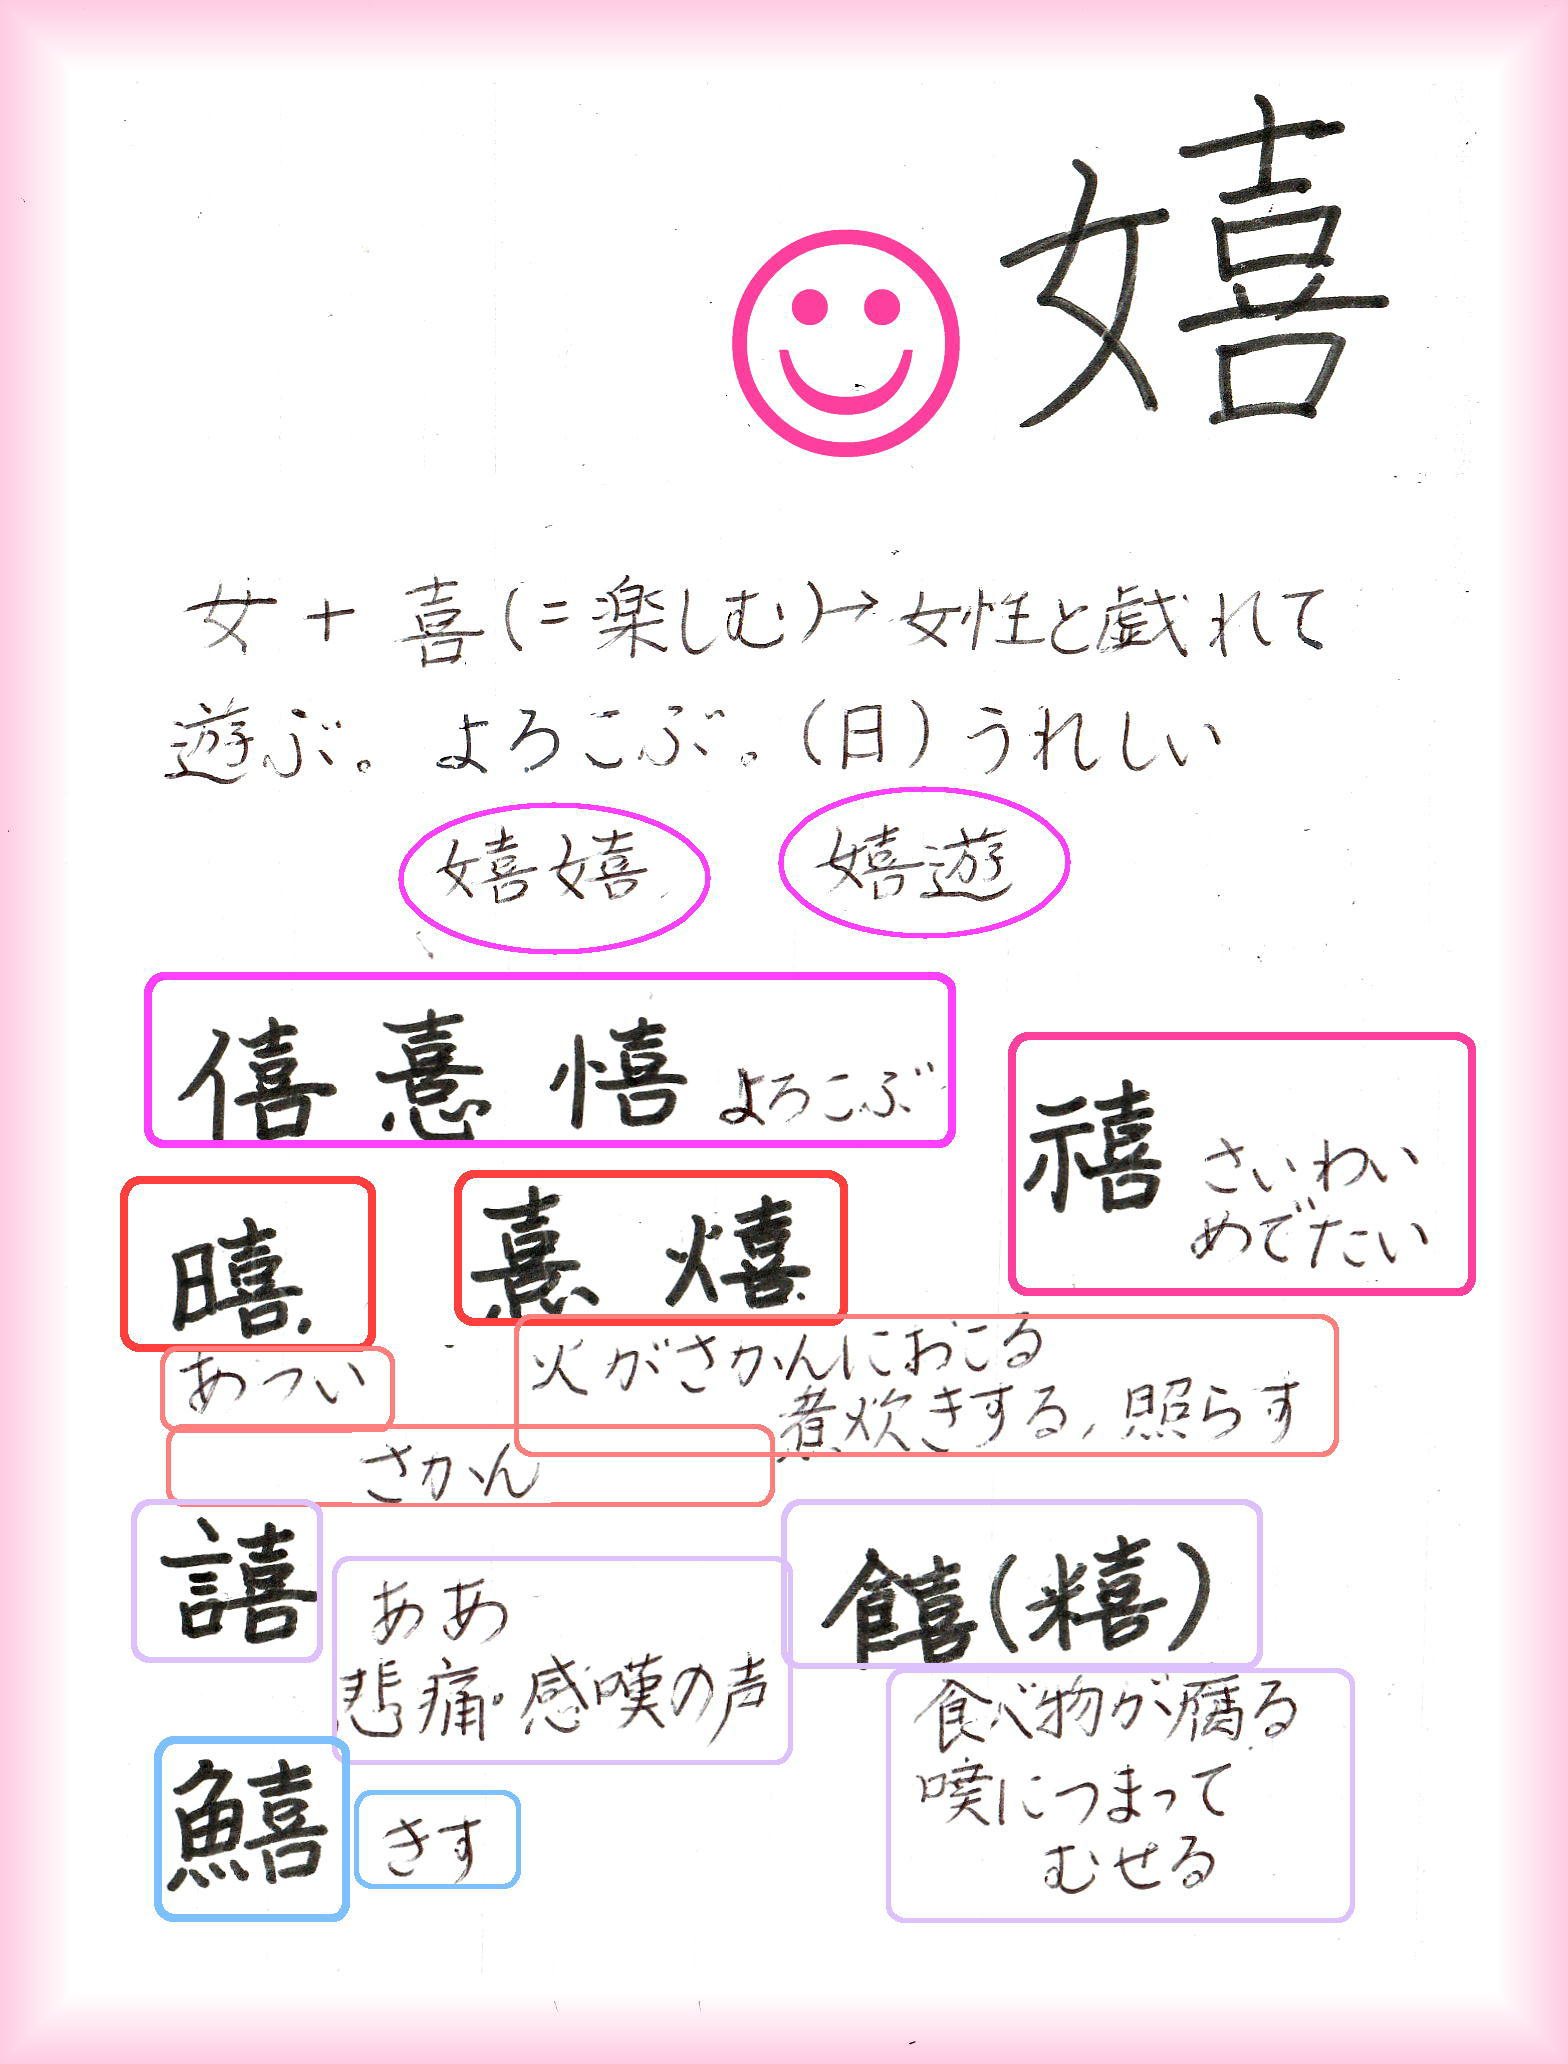 嬉
女+喜(=楽しむ)→女性と戯れて
遊ぶ。よろこぶ。(日)うれしい
嬉嬉 嬉遊
僖 憙 憘 よろこぶ
禧 さいわい
めでたい
暿 熹 熺
あつい
火がさかんにおこる
煮炊きする,照らす
さかん
譆
ああ
悲痛・感嘆の声
饎(糦)
食べ物が腐る
につまって
むせる
鱚
きす